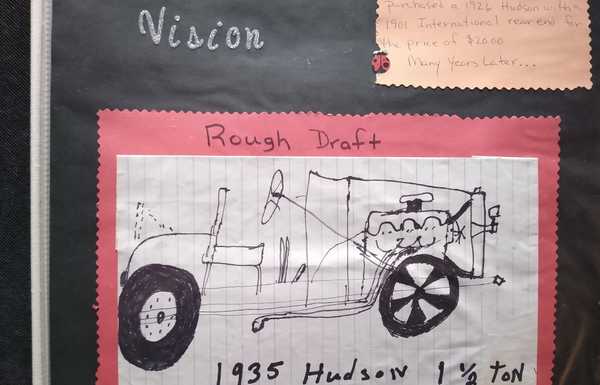 Vision
purchased a 1926 Hudson with a
1901 International rear end for
the price of $20.00
Many Years Later...
Rough Draft
1935 Hudson 1 1/2 ton